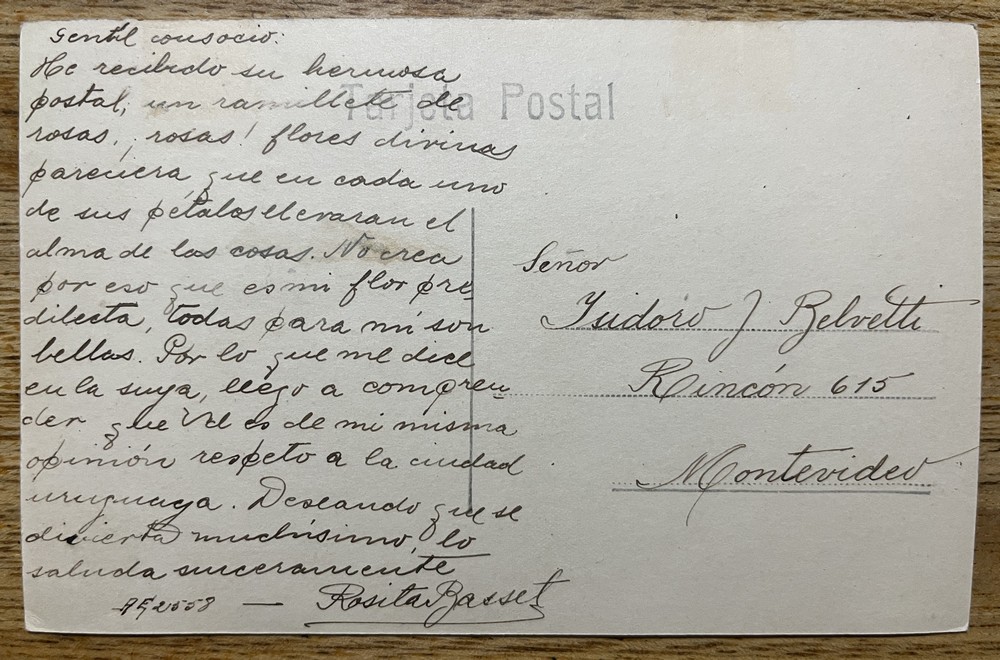 Gentil consocio:
He recibido su hermosa
postal, un ramillete de
rosas, ¡rosas! flores divinas
pareciera que en cada uno
de sus pétalos llevaran el
alma de las cosas. No crea
por eso que es mi flor pre-
dilecta, todas para mi son
bellas. Por lo que me dice
en la suya, llego a compren-
der que Vd es de mi misma
opinión respeto a la ciudad
uruguaya. Deseando que se
divierta muchísimo, lo
saluda sinceramente
Rosita Basset
Tarjeta Postal
Señor
Isidoro J Belvetti
Rincón 615
Montevideo